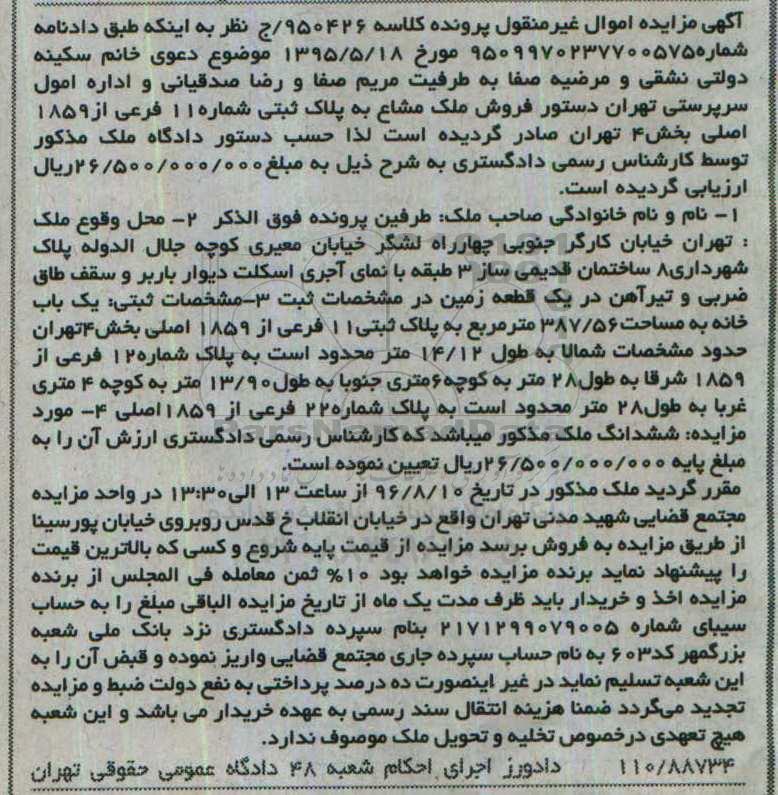 آگهی مزایده اموال غیرمنقول پرونده کلاسه ۹۵۰۴۲۶/ج نظر به اینکه طبق دادنامه
شماره۹۵۰۹۹۷۰۲۳۷۷۰۰۵۷۵ مورخ ۱۳۹۵/۵/۱۸ موضوع دعوی خانم سکینه
دولتی نشقی و مرضیه صفا به طرفیت مریم صفا و رضا صدقیانی و اداره امول
سرپرستی تهران دستور فروش ملک مشاع به پلاک ثبتی شماره۱۱ فرعی از۱۸۵۹
اصلی بخش۴ تهران صادر گردیده است لذا حسب دستور دادگاه ملک مذکور
توسط کارشناس رسمی دادگستری به شرح ذیل به مبلغ۲۶/۵۰۰/۰۰۰/۰۰۰ریال
ارزیابی گردیده است.
۱- نام و نام خانوادگی صاحب ملک: طرفین پرونده فوق الذکر ۲- محل وقوع ملک
: تهران خیابان کارگر جنوبی چهارراه لشگر خیابان معیری کوچه جلال الدوله پلاک
شهرداری۸ ساختمان قدیمی ساز ۳ طبقه با نمای آجری اسکلت دیوار باربر و سقف طاق
ضربی و تیرآهن در یک قطعه زمین در مشخصات ثبت ۳-مشخصات ثبتی: یک باب
خانه به مساحت۳۸۷/۵۶ مترمربع به پلاک ثبتی۱۱ فرعی از ۱۸۵۹ اصلی بخش۴تهران
حدود مشخصات شمالا به طول ۱۴/۱۲ متر محدود است به پلاک شماره۱۲ فرعی از
۱۸۵۹ شرقا به طول۲۸ متر به کوچه۶متری جنوبا به طول۱۳/۹۰ متر به کوچه ۴ متری
غربا به طول۲۸ متر محدود است به پلاک شماره۲۲ فرعی از ۱۸۵۹اصلی ۴- مورد
مزایده: ششدانگ ملک مذکور میباشد که کارشناس رسمی دادگستری ارزش آن را به
مبلغ پایه ۲۶/۵۰۰/۰۰۰/۰۰۰ریال تعیین نموده است.
مقرر گردید ملک مذکور در تاریخ ۹۶/۸/۱۰ از ساعت ۱۳ الی۱۳:۳۰ در واحد مزایده
مجتمع قضایی شهید مدنی تهران واقع در خیابان انقلاب خ قدس روبروی خیابان پورسینا
از طریق مزایده به فروش برسد مزایده از قیمت پایه شروع و کسی که بالاترین قیمت
را پیشنهاد نماید برنده مزایده خواهد بود ۱۰% ثمن معامله فی المجلس از برنده
مزایده اخذ و خریدار باید ظرف مدت یک ماه از تاریخ مزایده الباقی مبلغ را به حساب
سیبای شماره ۲۱۷۱۲۹۹۰۷۹۰۰۵ بنام سپرده دادگستری نزد بانک ملی شعبه
بزرگمهر کد۶۰۳ به نام حساب سپرده جاری مجتمع قضایی واریز نموده و قبض آن را به
این شعبه تسلیم نماید در غیر اینصورت ده درصد پرداختی به نفع دولت ضبط و مزایده
تجدید می‌گردد ضمنا هزینه انتقال سند رسمی به عهده خریدار می باشد و این شعبه
هیچ تعهدی درخصوص تخلیه و تحویل ملک موصوف ندارد.
۱۱۰/۸۸۷۳۴ دادورز اجرای احکام شعبه ۴۸ دادگاه عمومی حقوقی تهران
ParsNamadData